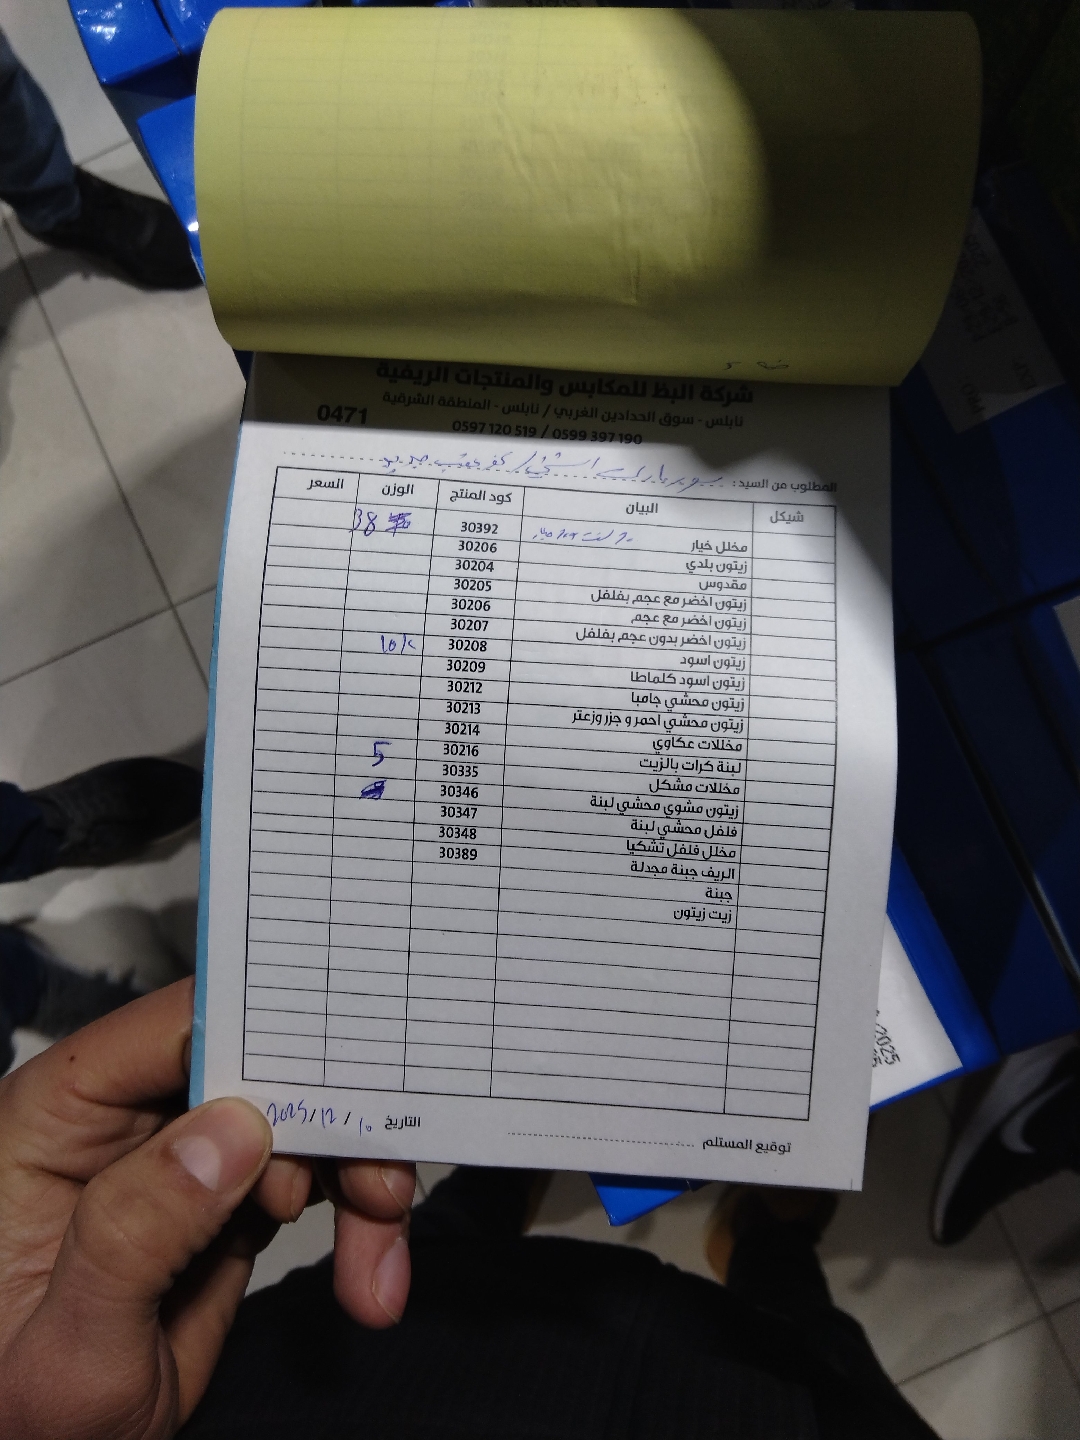 شركة البظ للمكابس والمنتجات الريفية
نابلس - سوق الحدادين الغربي / نابلس - المنطقة الشرقية
0471
0597 120 519 / 0599 397 190
المطلوب من السيد:
شيكل البيان كود المنتج الوزن السعر
مخلل خيار 30392 38
زيتون بلدي 30206
مقدوس 30204
زيتون اخضر مع عجم بفلفل 30205
زيتون اخضر مع عجم 30206
زيتون اخضر بدون عجم بفلفل 30207
زيتون اسود 30208
زيتون اسود كلماطا 30209
زيتون محشي جامبا 30212
زيتون محشي احمر و جزر وزعتر 30213
مخللات عكاوي 30214
لبنة كرات بالزيت 30216 5
مخللات مشكل 30335
زيتون مشوي محشي لبنة 30346
فلفل محشي لبنة 30347
مخلل فلفل تشكيا 30348
الريف جبنة مجدلة 30389
جبنة
زيت زيتون
التاريخ ١٠ / ١٢ / 2025
توقيع المستلم